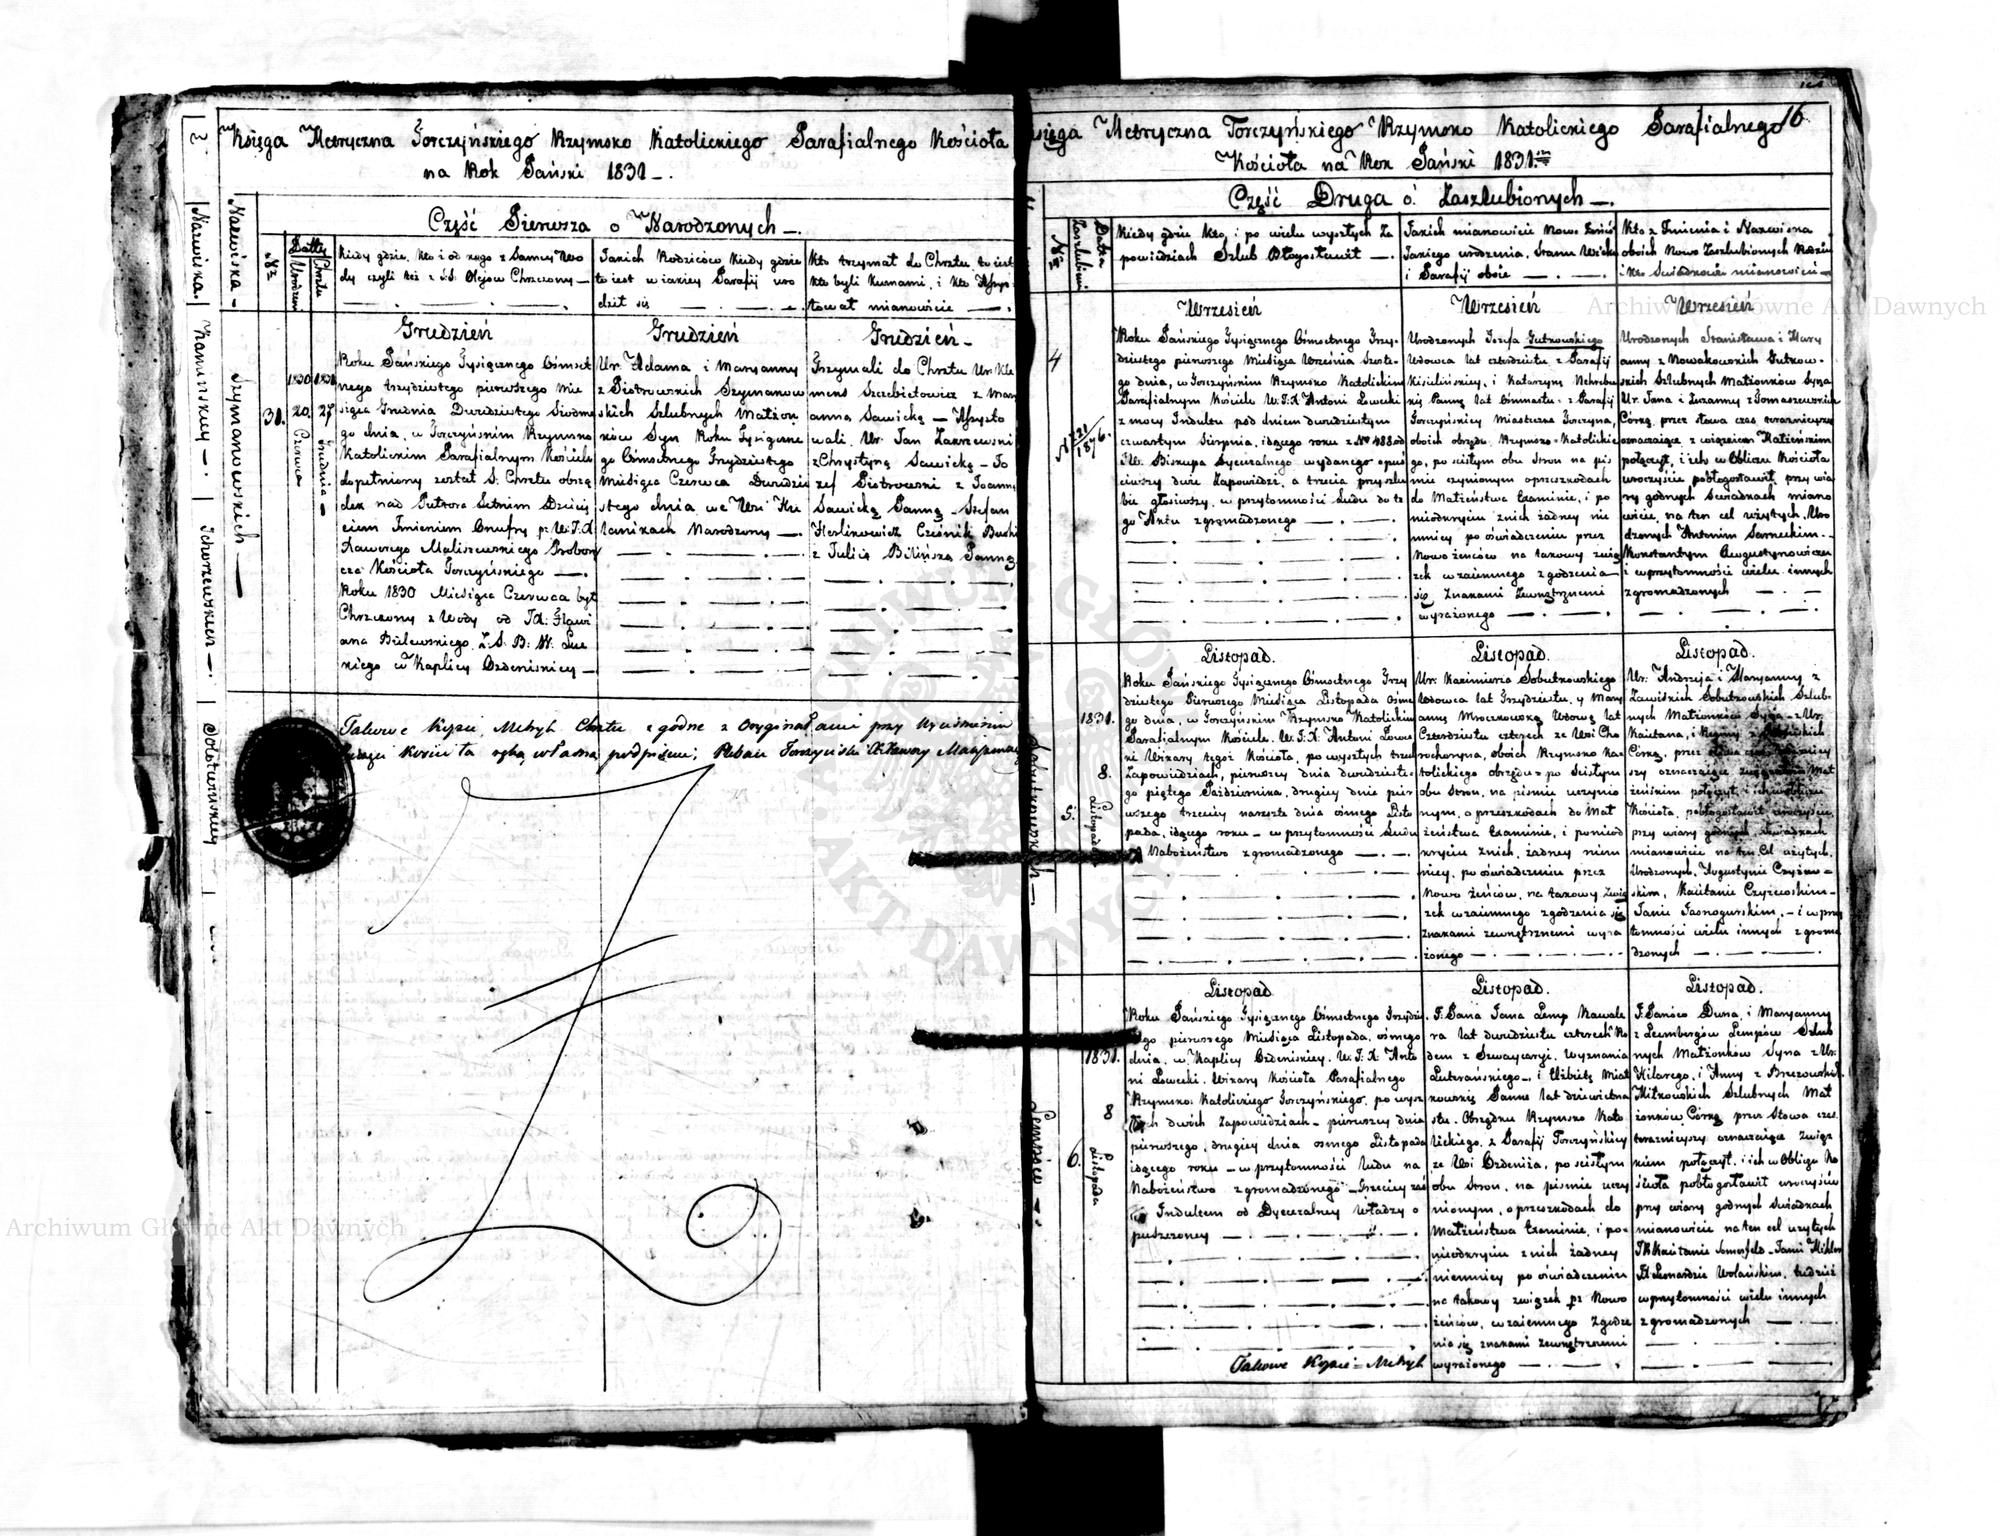 Księga Metryczna Torczyńskiego Rzymsko Katolickiego Parafialnego Kościoła
na Rok Pański 1831 —.
Część Pierwsza o Narodzonych —.
Nazwiska —
Nr
Datty
Urodzenia
Chrztu
Kiedy gdzie, Kto i od kogo z Samey Wo
dy czyli też z SS. Olejow Chrzczony —
Jakich Rodziców, Kiedy gdzie
to iest w iakiey Parafij uro
dził się
Kto trzymał do Chrztu to iest
kto byli Kumami, i kto Assys-
tował mianowicie —
Szymanowskich —
30.
1830
20.
Czerwca
1831
27
Grudnia
Grudzień
Roku Pańskiego Tysiącznego Ośmset
nego trzydziestego pierwszego Mie
siąca Grudnia Dwudziestego Siódme
go dnia, w Torczyńskim Rzymsko
Katolickim Parafialnym Kościele
dopełniony został S. Chrztu obrzą
dek nad Putrora Letnim Dzieci
ęciem Imieniem Onufry p. W. J. X.
Xawerego Maliszewskiego Probosz
cza Kościoła Torczyńskiego —.
Roku 1830 Miesiąca Czerwca był
Chrzczony z Wody od JX: Flawi
ana Bulewskiego Z. S. B. W. Łuc
kiego w Kaplicy Ozdeniskiey —
Grudzień
Ur. Adama i Maryanny
z Piotrowskich Szymanow
skich Szlubnych Małżon
ków Syn Roku Tysiączne
go Ośmsetnego Trzydziestego
Miesiąca Czerwca Dwudzie
stego dnia, we Wsi Kże
Narodzony —.
Grudzień —
Trzymali do Chrztu Ur. Kle
mens Szczebietowicz z Mary
anną Sawicką — Assysto
wali, Ur. Jan Zakrzewski
z Chrystyną Sawicką — Jo
zef Piotrowski z Joanną
Sawicką Panną — Stefan
Cześnik Buski
z Julią Bilińską Panną
Takowe Kopie Metryk Chrztu zgodne z Oryginałami przy Kościele
ręką własną podpisem. Pleban Torczyński
Księga Metryczna Torczyńskiego Rzymsko Katolickiego Parafialnego 16
Kościoła na Rok Pański 1831.
Część Druga o Zaszlubionych —.
Nr
Datta
Zaszlubin
Kiedy gdzie Kto, i po wielu wyszłych Za
powiedziach Szlub Błogosławił —.
Jakich mianowicie Nowo Żeńców
Jakiego urodzenia, Stanu Wieku
i Parafij oboie —
Kto z Imienia i Nazwiska
oboich Nowo Zaszlubionych Rodzice
i kto Świadkowie mianowicie —
4
N 221/1876.
Wrzesień
Roku Pańskiego Tysiącznego Ośmsetnego Trzy-
dziestego pierwszego Miesiąca Września Szoste-
go dnia, w Torczyńskim Rzymsko Katolickim
Parafialnym Kościele W. J. X. Antoni Łowcki
z mocy Indultu pod dniem dwudziestym
czwartym Sierpnia, idącego roku z No 488. od
JW. Biskupa Dyecezalnego wydanego opuś
ciwszy dwie Zapowiedzi, a trzecią przy szlu
bie głosiwszy, w przytomności Ludu do te
go Aktu zgromadzonego —
Wrzesień
Urodzonych Jozefa Gutkowskiego
Wdowca lat czterdziestu z Parafij
Kisielińskiey, i Katarzynę Nehreb
Pannę lat ośmnastu z Parafij
Torczyńskiey Miasteczka Torczyna,
oboich obrządku Rzymsko-Katolickie
go, po scisłym obu Stron na piś
mie czynionym o przeszkodach
do Małżeństwa Examinie, i po
nieodkryciu z nich żadney nie
mniey po oświadczeniu przez
Nowo żenców na takowy zwią
zek wzaiemnego zgodzenia
się Znakami Zewnętrznemi
wyrażonego —
Wrzesień
Urodzonych Stanisława i Mary
anny z Nowakowskich Gutkow-
skich Szlubnych Małżonków Syna
Ur. Jana i Zuzanny z Tomaszewskich
Córką, przez słowa czas teraźnieyszy
oznaczaiące z wiązkiem Małżeńskim
połączył, i ich w Obliczu Kościoła
uroczyście pobłogosławił, przy wia
ry godnych Świadkach miano
wicie, na ten cel użytych, Uro
dzonych Antonim Sarneckim —
Konstantym Augustynowiczem
i w przytomności wielu innych
zgromadzonych —
5.
1831.
8.
Listopada
Listopad.
Roku Pańskiego Tysiącznego Ośmsetnego Trzy
dziestego Pierwszego Miesiąca Listopada Osme
go dnia, w Torczyńskim Rzymsko Katolickim
Parafialnym Kościele. W. J. X. Antoni Łowc
ki Wikary tegoż Kościoła, po wyszłych trzech
Zapowiedziach, pierwszey dnia dwudzieste-
go piątego Października, drugiey dnia pier
wszego trzeciey narzeszcie dnia osmego Listo
pada, idącego roku — w przytomności Ludu
Nabożeństwo zgromadzonego —
Listopad.
Ur. Kazimierza Sobutkowskiego
Wdowca lat Trzydziestu, y Mary
annę Mroczkowską Wdowę lat
Czterdziestu czterech ze Wsi Cho
rochoryna, oboich Rzymsko Ka-
tolickiego obrządku po scisłym
obu Stron, na piśmie uczynio
nym, o przeszkodach do Mał
żeństwa Examinie, i ponieod
kryciu z nich, żadney niem
niey, po oświadczeniu przez
Nowo żeńców, na takowy Zwią
zek wzaiemnego zgodzenia się
znakami zewnętrznemi wyra
żonego —
Listopad.
Ur. Andrzeja i Maryanny z
Zawiśkich Sobutkowskich Szlub-
nych Małżonków Syna — z Ur.
Kaietana, i
Córką, przez słowa czas teraźniey
szy oznaczaiące związkiem Mał
żeńskim połączył, i ich w obliczu
Kościoła, pobłogosławił uroczyście,
przy wiary godnych Świadkach
mianowicie na ten Cel użytych.
Urodzonych, Augustynie Czyżew-
skim, Kaietanie Czyżewskim —
Janie Jasnogurskim, — i w przy
tomności wielu innych zgroma
dzonych —
6.
1831.
8
Listopada
Listopad.
Roku Pańskiego Tysiącznego Ośmsetnego Trzydzie-
stego pierwszego Miesiąca Listopada, osmego
dnia, w Kaplicy Ozdeniskiey. W. J. X. Anto
ni Łowcki. Wikary Kościoła Parafialnego
Rzymsko Katolickiego Torczyńskiego, po wysz
łych dwóch Zapowiedziach — pierwszey dnia
pierwszego, drugiey dnia osmego Listopada
idącego roku — w przytomności ludu na
Nabożeństwo zgromadzonego — Trzeciey zaś
Indultem od Dyecezalney Władzy o
puszczoney —
Takowe Kopie Metryk
Listopad.
J. Pana Jana Lemp Kawale
ra lat dwudziestu czterech Ro
dem z Szwaycaryi. Wyznania
Luterańskiego —, i Elżbietę Miał
kowskę Pannę lat dziewietna
stu. Obrządku Rzymsko Kato
lickiego, z Parafij Torczyńskiey
ze Wsi Ozdeniża, po scisłym
obu Stron, na piśmie uczy
nionym, o przeszkodach do
Małżeństwa Examinie, i po-
nieodkryciu z nich żadney
niemniey po oświadczeniu
na takowy związek pz Nowo
żeńców, wzaiemnego Zgodze
nia się, znakami zewnętrznemi
wyrażonego —
Listopad.
J. Panów Duna, i Maryanny
z Lembergów Lempów Szlub
nych Małżonków Syna z Ur.
Hilarego, i Anny z Brzozowskich
Miłkowskich Szlubnych Mał
żonków Córką, przez Słowa czas
teraźnieyszy oznaczaiące Związ
kiem połączył, i ich w Obliczu Ko
ścioła pobłogosławił uroczyście
przy wiary godnych Świadkach
mianowicie na ten cel użytych
Kaietanie Somerfeld — Janie Mikler
Leonardzie Wolańskim, tudzież
w przytomności wielu innych
zgromadzonych —
Archiwum Główne Akt Dawnych
Archiwum Główne Akt Dawnych
ARCHIWUM GŁÓWNE AKT DAWNYCH